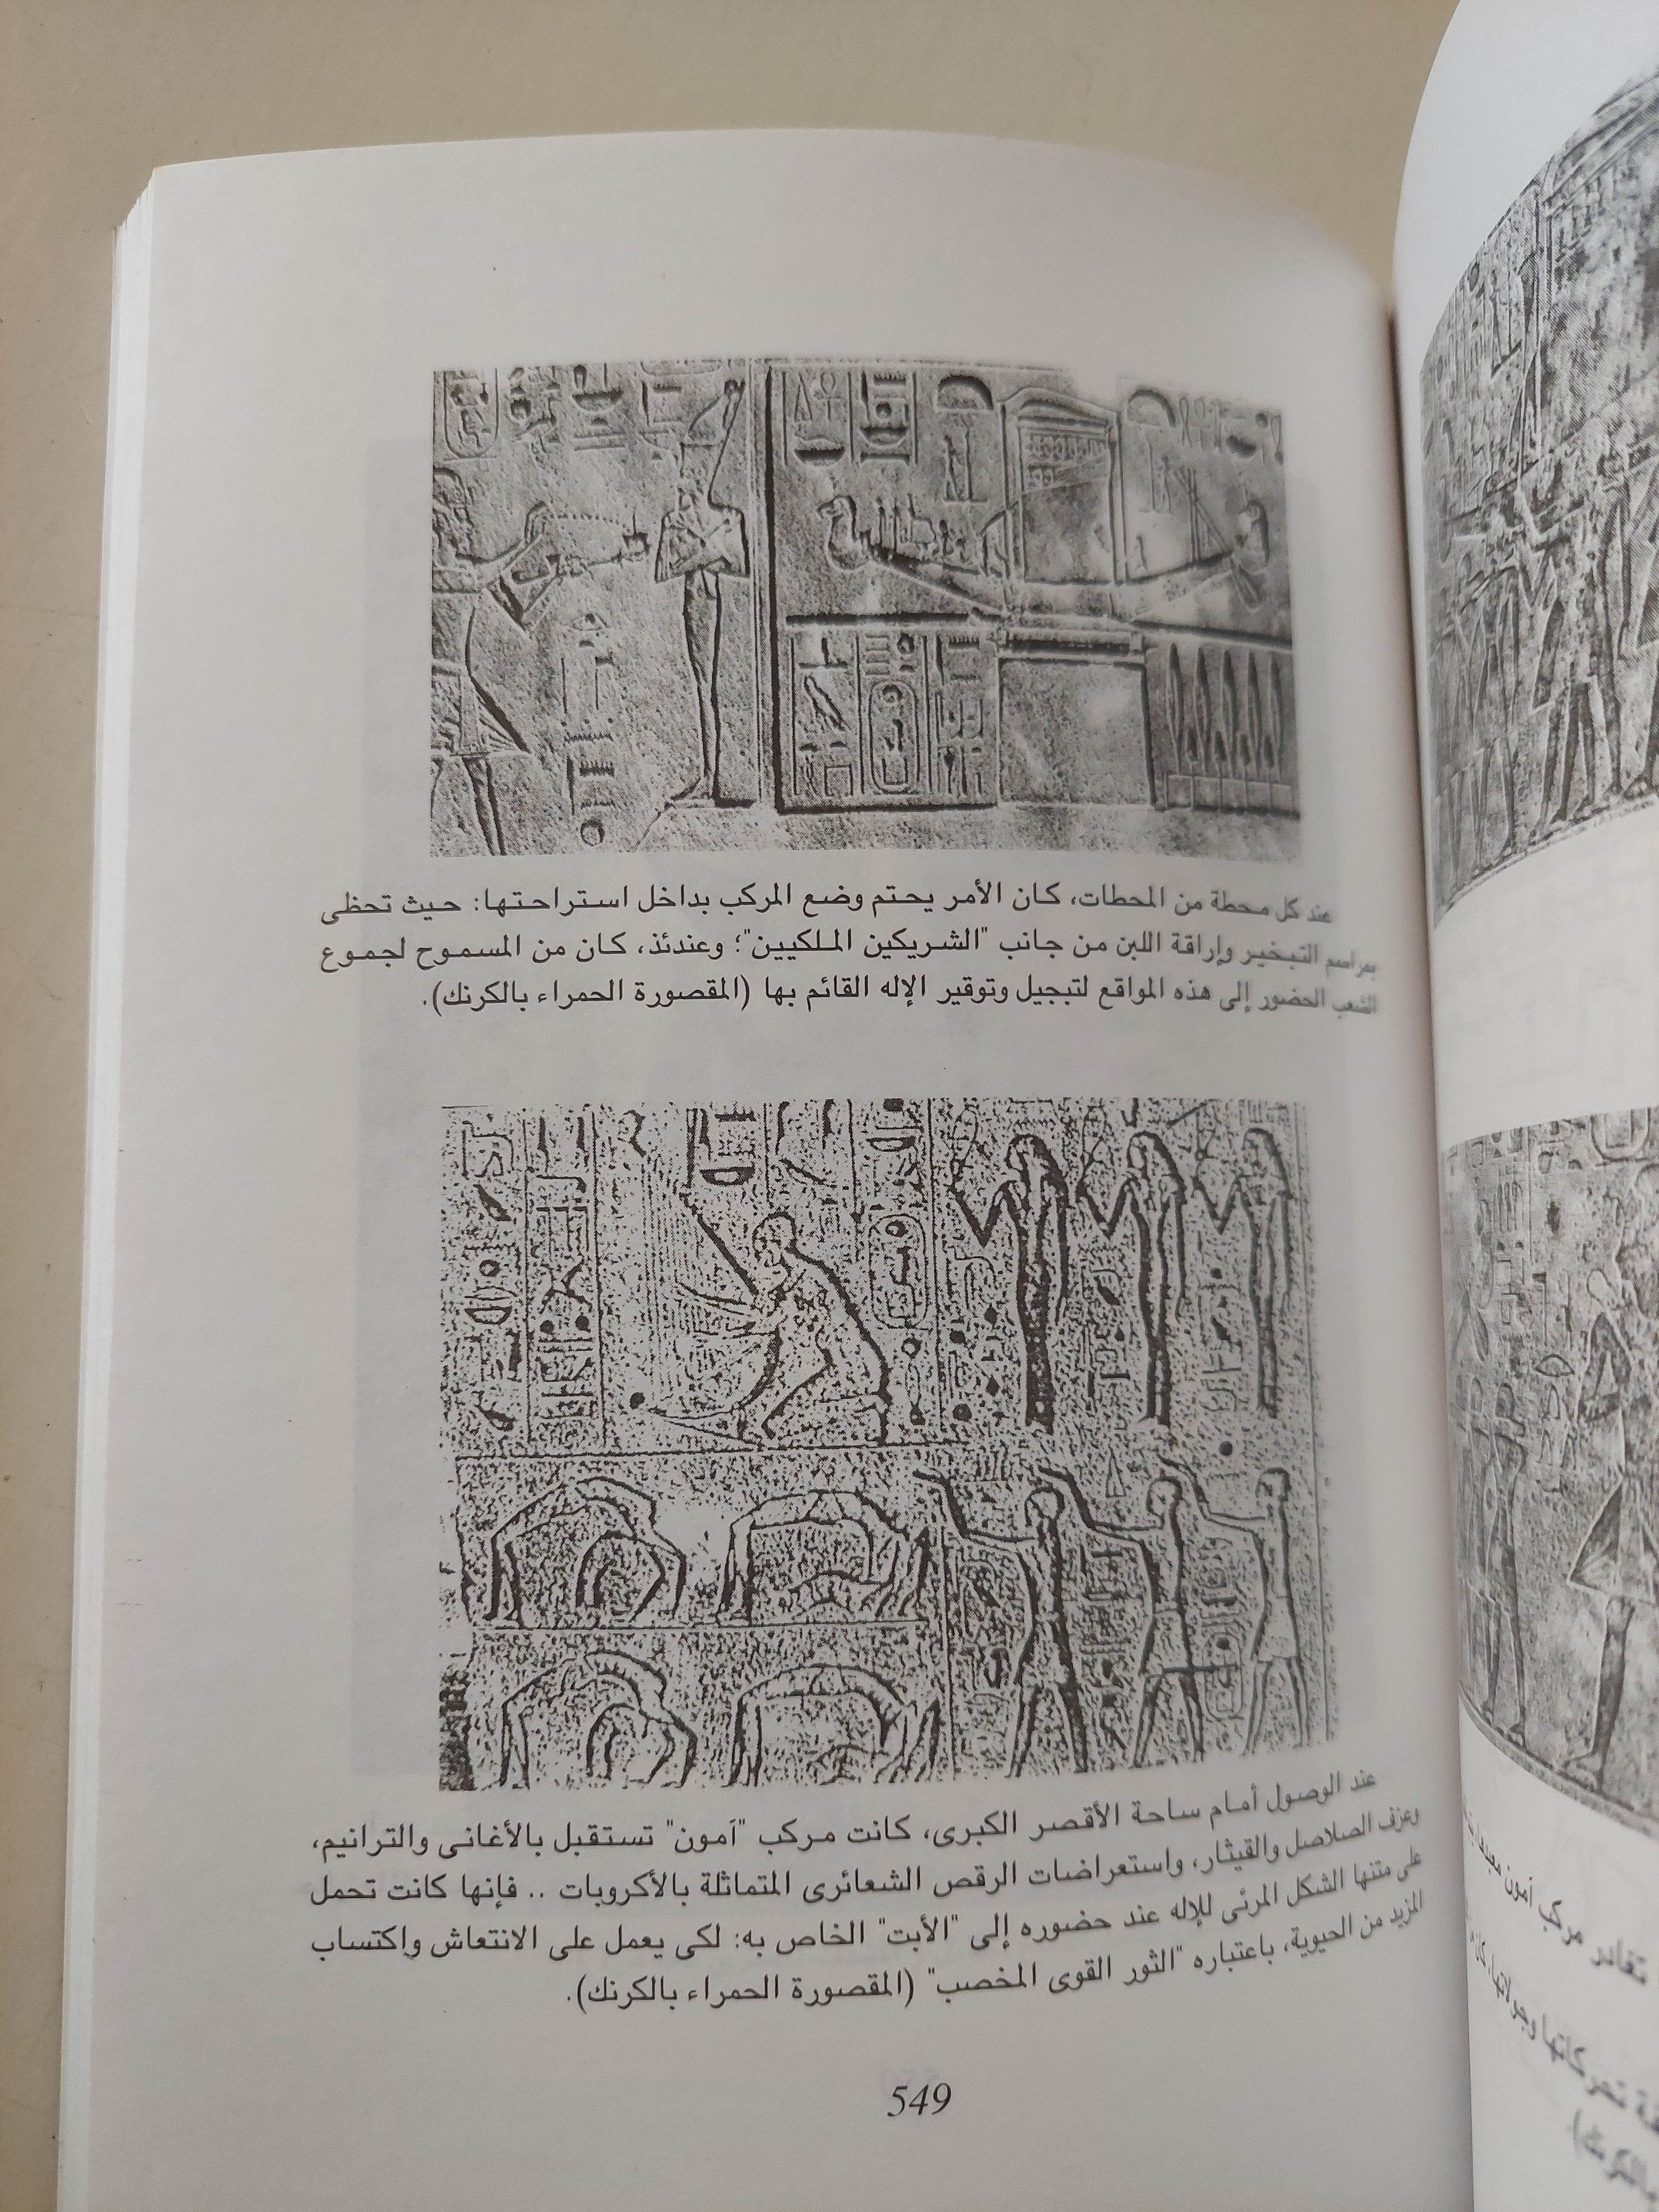 عند كل محطة من المحطات، كان الأمر يحتم وضع المركب بداخل استراحتها: حيث تحظى
بمراسم التبخير وإراقة اللبن من جانب "الشريكين الملكيين"؛ وعندئذ، كان من المسموح لجموع
الشعب الحضور إلى هذه المواقع لتبجيل وتوقير الإله القائم بها (المقصورة الحمراء بالكرنك).
عند الوصول أمام ساحة الأقصر الكبرى، كانت مركب "آمون" تستقبل بالأغانى والترانيم،
وعزف الصلاصل والقيثار، واستعراضات الرقص الشعائرى المتماثلة بالأكروبات .. فإنها كانت تحمل
على متنها الشكل المرئى للإله عند حضوره إلى "الأبت" الخاص به: لكى يعمل على الانتعاش وإكتساب
المزيد من الحيوية، باعتباره "الثور القوى المخصب" (المقصورة الحمراء بالكرنك).
549
تغادر مركب آمون